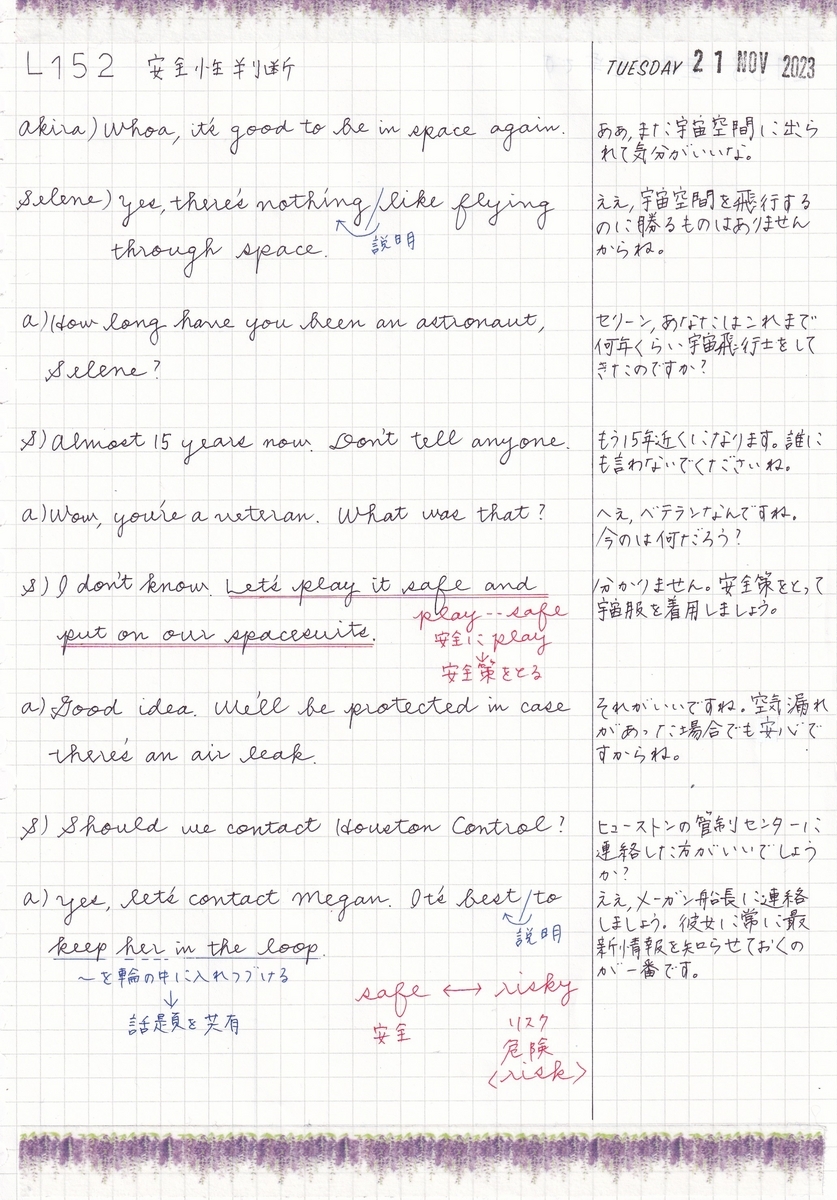 L152 安全性判断
TUESDAY 21 NOV 2023
akira) Whoa, it's good to be in space again.
ああ, また宇宙空間に出ら
れて気分がいいな。
Selene) Yes, there's nothing / like flying
説明
through space.
ええ, 宇宙空間を飛行する
のに勝るものはありません
からね。
a) How long have you been an astronaut,
Selene?
セリーン, あなたはこれまで
何年くらい宇宙飛行士をして
きたのですか?
S) Almost 15 years now. Don't tell anyone.
もう15年近くになります。誰に
も言わないでくださいね。
a) Wow, you're a veteran. What was that?
へえ, ベテランなんですね。
今のは何だろう?
S) I don't know. Let's play it safe and
put on our spacesuits.
play--safe
安全に play
↓
安全策をとる
分かりません。安全策をとって
宇宙服を着用しましょう。
a) Good idea. We'll be protected in case
there's an air leak.
それがいいですね。空気漏れ
があった場合でも安心で
すからね。
S) Should we contact Houston Control?
ヒューストンの管制センターに
連絡した方がいいでしょう
か?
a) Yes, let's contact Megan. It's best / to
説明
keep her in the loop.
～を輪の中に入れつづける
↓
話題を共有
ええ, メーガン船長に連絡
しましょう。彼女に常に最
新情報を知らせておくの
が一番です。
safe ↔ risky
安全 リスク
危険
〈risk〉